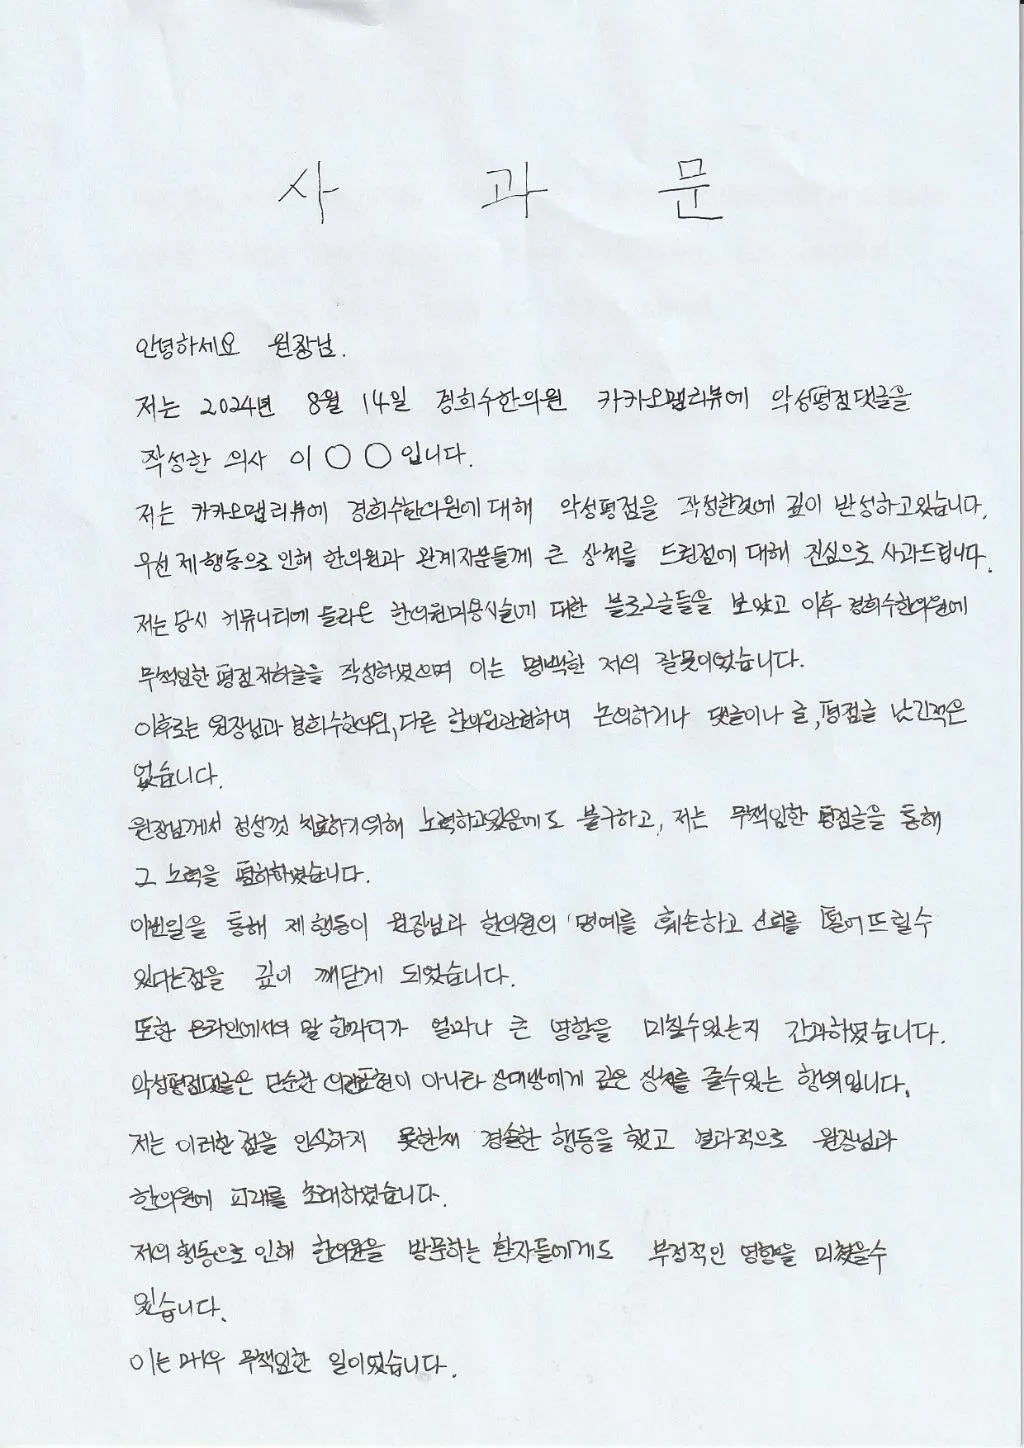 사 과 문
안녕하세요 원장님.
저는 2024년 8월 14일 경희수한의원 카카오맵리뷰에 악성평점댓글을
작성한 의사 이○○입니다.
저는 카카오맵리뷰에 경희수한의원에대해 악성평점을 작성한것에 깊이 반성하고있습니다.
우선 제행동으로 인해 한의원과 관계자분들께 큰 상처를 드린점에 대해 진심으로 사과드립니다.
저는 당시 커뮤니티에 올라온 한의원미용시술에 대한 블로그글들을 보았고 이후 경희수한의원에
무책임한 평점저하글을 작성하였으며 이는 명백한 저의 잘못이었습니다.
이후로는 원장님과 경희수한의원, 다른 한의원관련하여 논의하거나 댓글이나 글, 평점글 남긴적은
없습니다.
원장님께서 정성껏 치료하기위해 노력하고있음에도 불구하고, 저는 무책임한 평점글을 통해
그 노력을 폄하하였습니다.
이번일을 통해 제행동이 원장님과 한의원의 명예를 훼손하고 신뢰를 떨어뜨릴수
있다는점을 깊이 깨닫게 되었습니다.
또한 온라인에서의 말 한마디가 얼마나 큰 영향을 미칠수있는지 간과하였습니다.
악성평점댓글은 단순한 의견표현이 아니라 상대방에게 깊은 상처를 줄수있는 행위입니다.
저는 이러한 점을 인식하지 못한채 경솔한 행동을 했고 결과적으로 원장님과
한의원에 피해를 초래하였습니다.
저의행동으로 인해 한의원을 방문하는 환자들에게도 부정적인 영향을 미쳤을수
있습니다.
이는 매우 무책임한 일이었습니다.